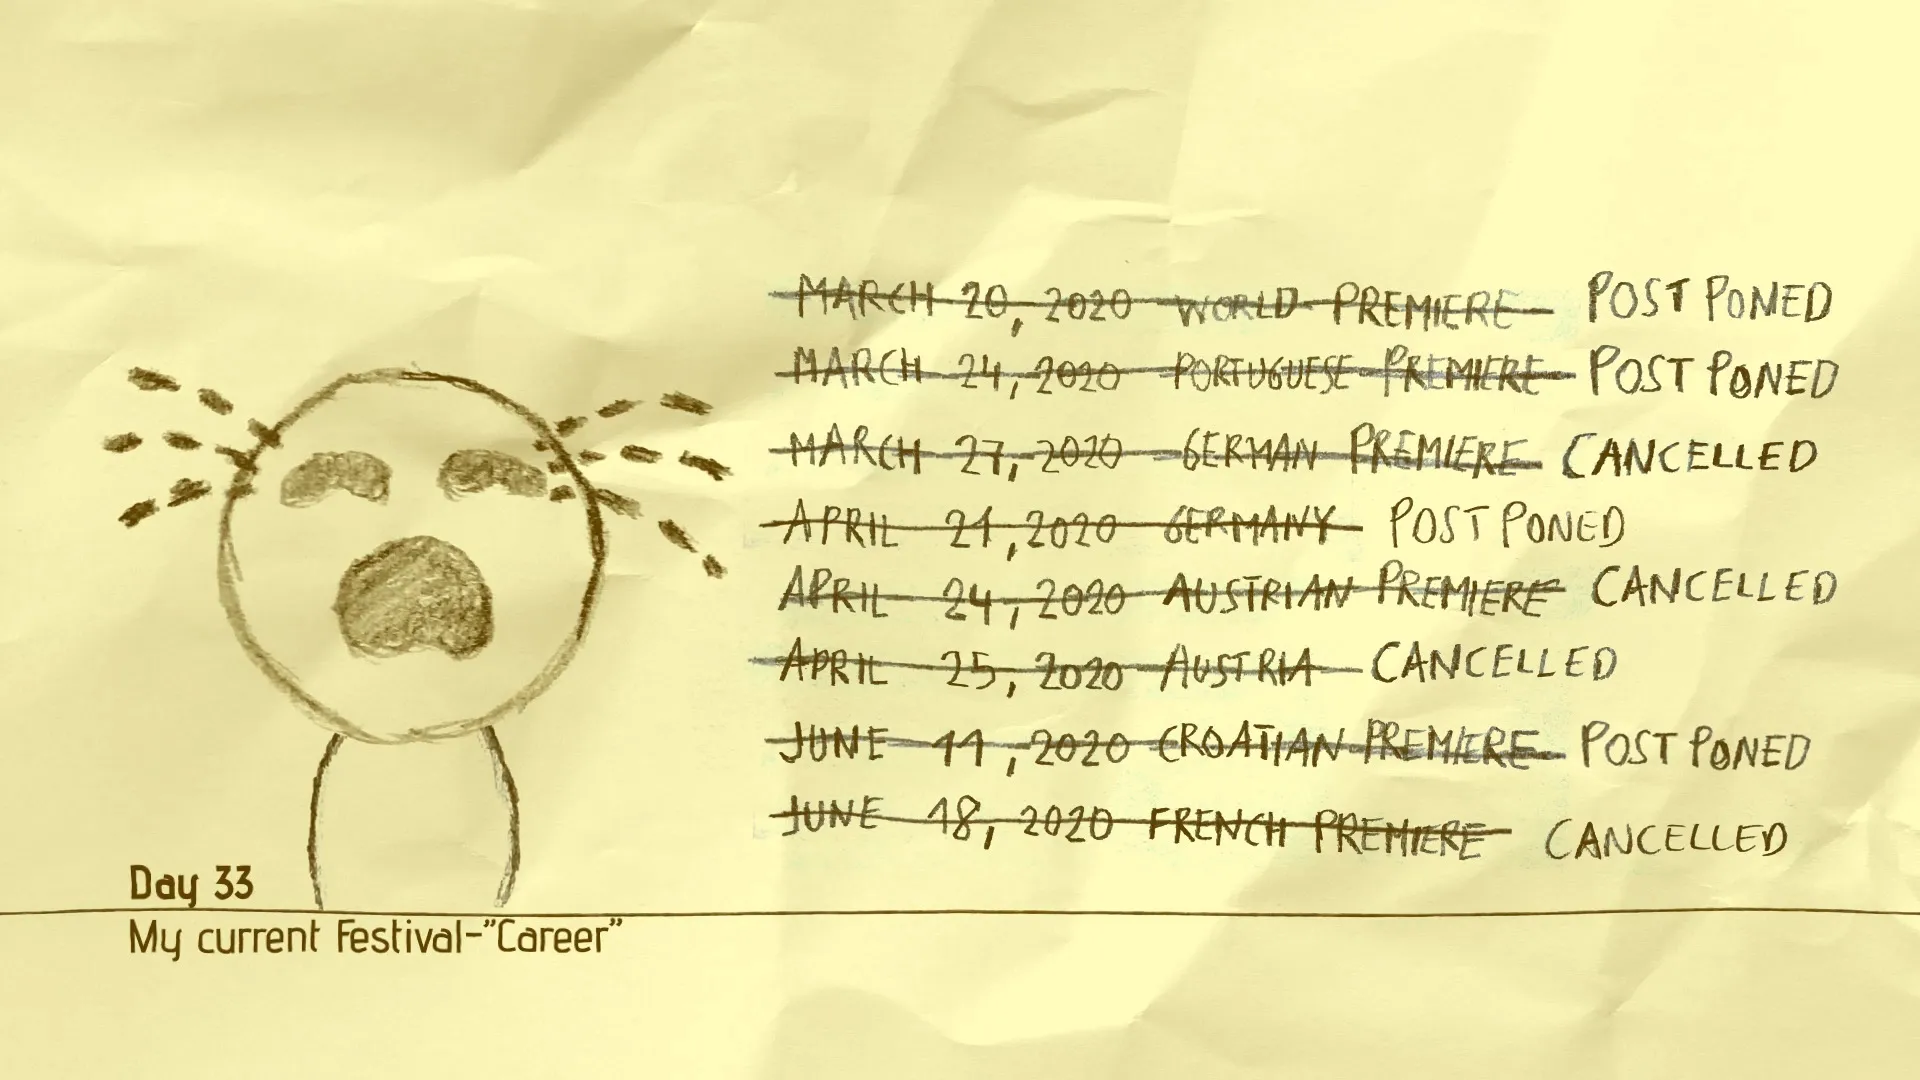 MARCH 20, 2020 WORLD PREMIERE POSTPONED
MARCH 24, 2020 PORTUGUESE PREMIERE POSTPONED
MARCH 27, 2020 GERMAN PREMIERE CANCELLED
APRIL 21, 2020 GERMANY POSTPONED
APRIL 24, 2020 AUSTRIAN PREMIERE CANCELLED
APRIL 25, 2020 AUSTRIA CANCELLED
JUNE 11, 2020 CROATIAN PREMIERE POSTPONED
JUNE 18, 2020 FRENCH PREMIERE CANCELLED
Day 33
My current Festival-"Career"